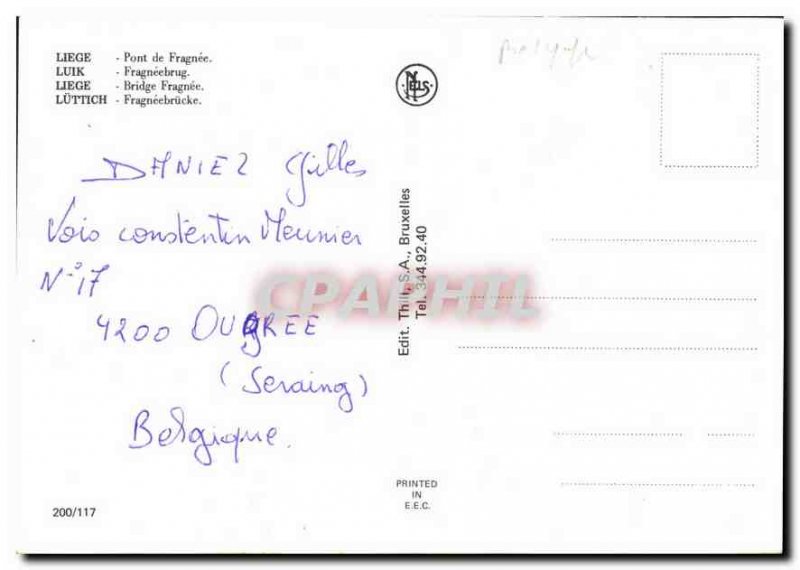 LIEGE - Pont de Fragnée.
LUIK - Fragnéebrug.
LIEGE - Bridge Fragnée.
LÜTTICH - Fragnéebrücke.
NELS
DANIEZ Gilles
Vois constentin Meunier
N° 17
4200 OUGREE
(Seraing)
Belgique.
Edit. Thill, S.A., Bruxelles
Tel. 344.92.40
CPAPHIL
PRINTED
IN
E.E.C.
200/117